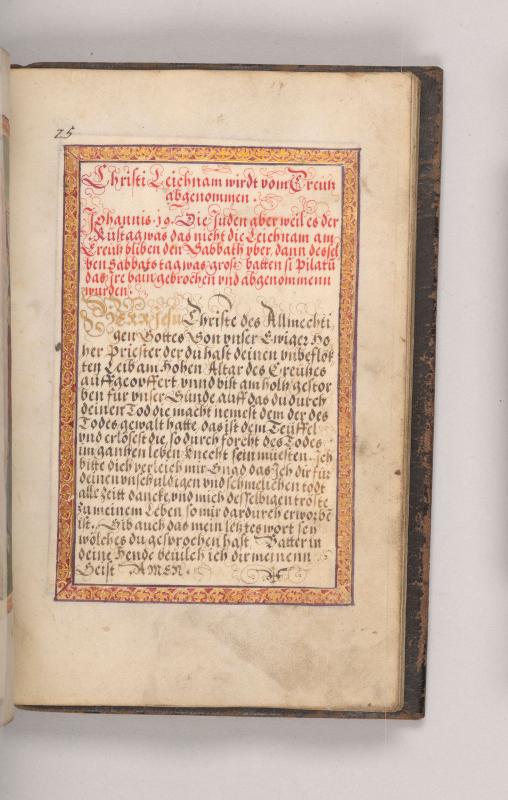 25
Christi Leichnam wirdt vom Creutz
abgenommen.
Johannis 19. Die Juden aber weil es der
Rüstag was das nicht die Leichnam am
Creutz bliben den Sabbath vber, dann dessel
ben Sabbats tag was gross batten si Pilatū
das Ire bain gebrochen vnd abgenommenn
wurden.
HERR Jesu Christe des Allmechti
gen Gottes Son vnser Ewiger Ho
her Priester der du hast deinen vnbeflok
ten Leib am Hohen Altar des Creutzes
auffgeopffert vnnd bist am holtz gestor
ben für vnser Sünde auff das du durch
deinen Tod die macht nemest dem der des
Todes gewalt hatte, das ist dem Teüffel
vnd erlösest die, so durch forcht des Todes
im gantzen leben knecht sein müesten. Ich
bitte dich verleich mir Gnad das Ich dir für
deinen vnschuldigen vnd schmelichen todt
alle Zeitt dancke, vnd mich desselbigen tröste
zu meinem Leben so mir dardurch erworbē
ist. Gib auch das mein letztes wort sey
wölches du gesprochen hast Vatter in
deine Hende beuilch ich dir meinenn
Geist AMEN.